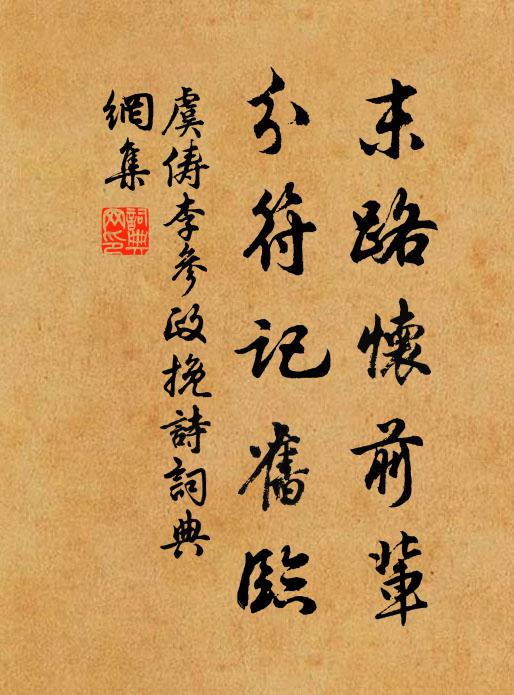 末路懷前輩
分符記舊臨
虞儔李參政挽詩詞典
網集
詞典
網印